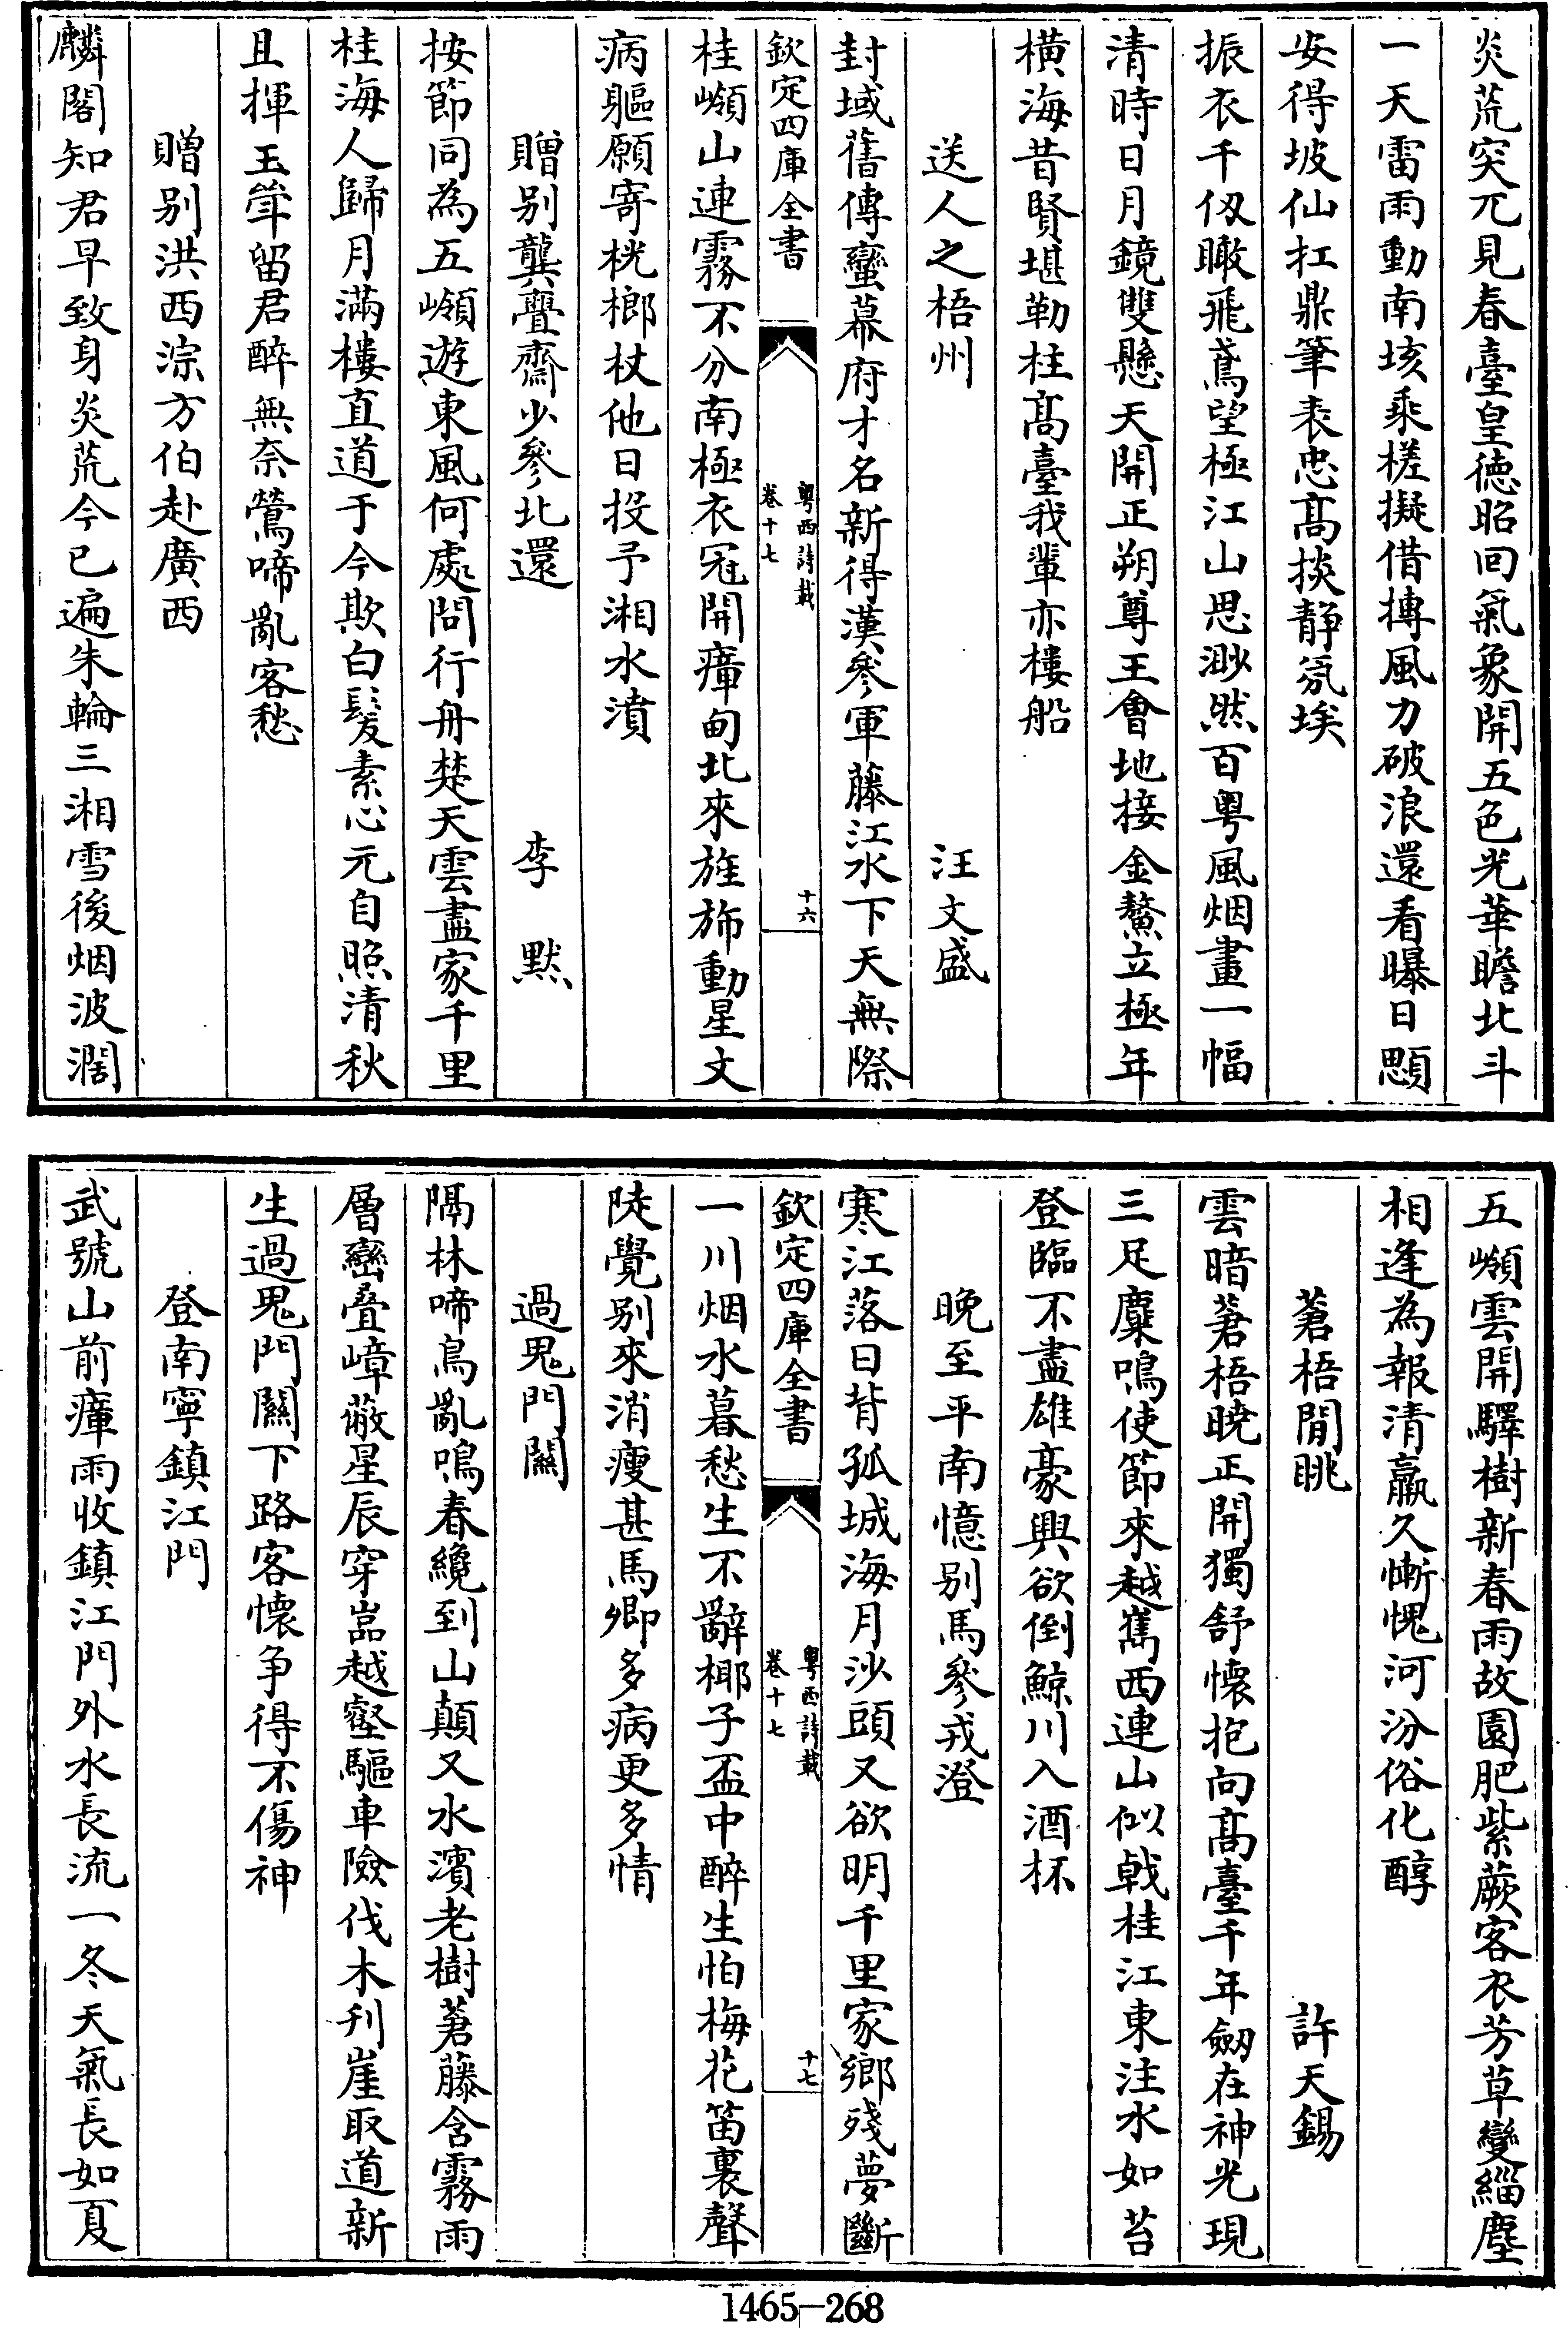 炎荒突兀見春臺皇德昭回氣象開五色光華瞻北斗
一天雷雨動南垓乘槎擬借摶風力破浪還看曝日顋
安得坡仙扛鼎筆表忠髙掞静氛埃
振衣千仭瞰飛鳶望極江山思渺然百粤風烟畫一幅
清時日月鏡雙懸天開正朔尊王會地接金鰲立極年
橫海昔賢堪勒柱髙臺我輩亦樓船
送人之梧州　汪文盛
封域舊傳蠻幕府才名新得漢參軍藤江水下天無際
欽定四庫全書
粤西詩載
卷十七
十六
桂嶺山連霧不分南極衣冠開瘴甸北來旌斾動星文
病軀願寄桄榔杖他日投予湘水濆
贈別龔亹齋少參北還　李默
按節同為五嶺遊東風何處問行舟楚天雲盡家千里
桂海人歸月滿樓直道于今欺白髮素心元自照清秋
且揮玉斝留君醉無奈鶯啼亂客愁
贈别洪西淙方伯赴廣西
麟閣知君早致身炎荒今已遍朱輪三湘雪後烟波濶
五嶺雲開驛樹新春雨故園肥紫蕨客衣芳草變緇塵
相逢為報清羸久慚愧河汾俗化醇
蒼梧閒眺　許天錫
雲暗蒼梧曉正開獨舒懷抱向髙臺千年劔在神光現
三足麋鳴使節來越嶲西連山似戟桂江東注水如苔
登臨不盡雄豪興欲倒鯨川入酒杯
晚至平南憶别馬參戎澄
寒江落日背孤城海月沙頭又欲明千里家鄉殘夢斷
欽定四庫全書
粤西詩載
卷十七
十七
一川烟水暮愁生不辭椰子盃中醉生怕梅花笛裏聲
陡覺别來消瘦甚馬卿多病更多情
過鬼門關
隔林啼鳥亂鳴春纔到山顛又水濱老樹蒼藤含霧雨
層巒疊嶂蔽星辰穿嵓越壑驅車險伐木刋崖取道新
生過鬼門關下路客懷争得不傷神
登南寧鎮江門
武號山前瘴雨收鎮江門外水長流一冬天氣長如夏
1465-268